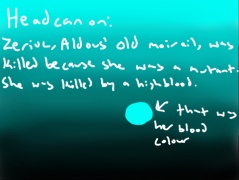 Headcanon:
Zerius, Aldous' old moirail, was
killed because she was a mutant.
She was killed by a highblood.
← that was
her blood
colour